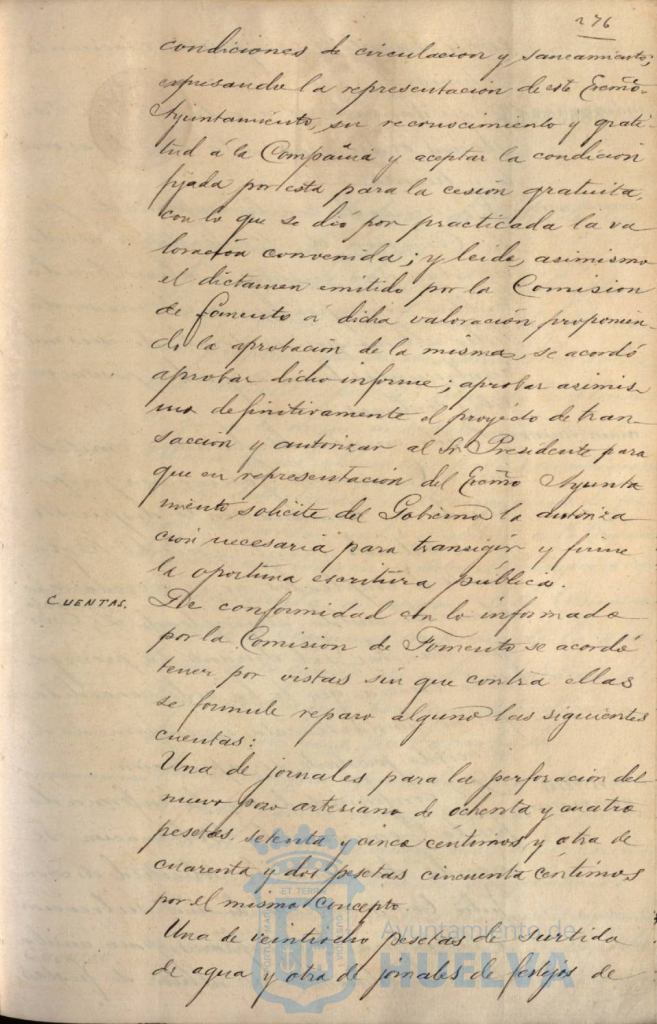 276
condiciones de circulacion y saneamiento;
expresando la representacion de este Excmo.
Ayuntamiento, su reconocimiento y grati-
tud á la Compañia y aceptar la condicion
fijada por esta para la cesión gratuita,
con lo que se dió por practicada la va
loracion convenida; y leido, asimismo
el dictamen emitido por la Comision
de fomento á dicha valoración proponien-
do la aprobación de la misma, se acordó
aprobar dicho informe; aprobar asimis-
mo definitivamente el proyecto de tran-
sacción y autorizar al Sr. Presidente para
que en representación del Excmo Ayunta
miento solicite del Gobierno la autoriza
cion necesaria para transigir y firme
la oportuna escritura pública.
CUENTAS.
De conformidad con lo informado
por la Comision de Fomento se acordó
tener por vistas sin que contra ellas
se formule reparo alguno las siguientes
cuentas:
Una de jornales para la perforación del
nuevo pozo artesiano de ochenta y cuatro
pesetas setenta y cinco céntimos y otra de
cuarenta y dos pesetas cincuenta céntimos
por el mismo concepto.
Una de veintiocho pesetas de surtida
de agua y otra de jornales de festejos de
Ayuntamiento de
HUELVA